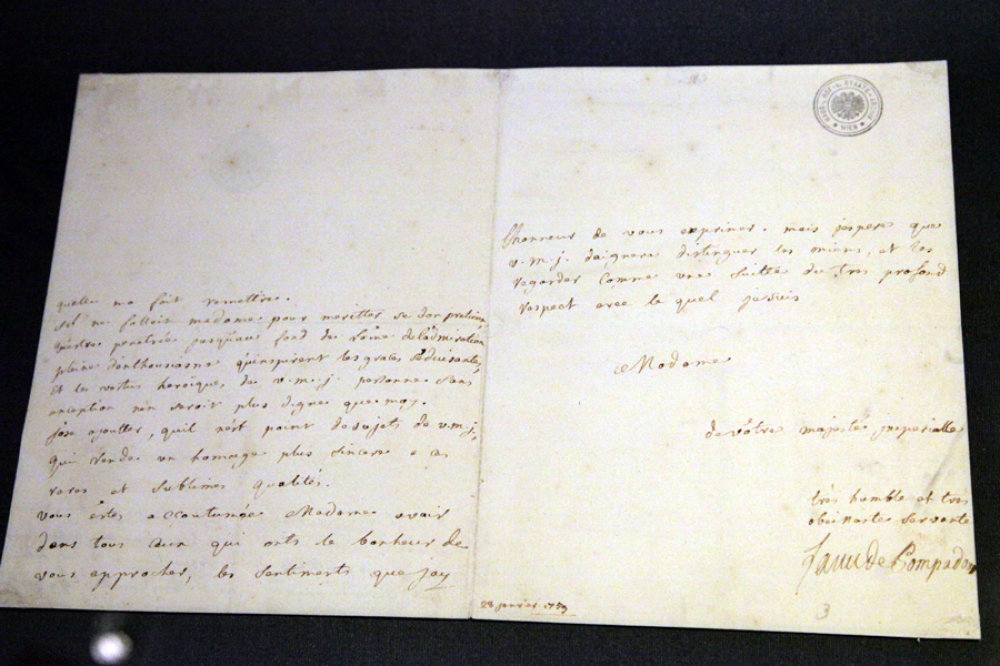 quelle ma fait remettre.
sil ne falloit madame pour meritter se don pretieux,
qu'estre penetrée jusqu'au fond de l'ame de l'admiration
pleine d'enthousiasme qu'inspirent les graces seduisantes,
et les vertus heroiques de v.m.j. personne sans
exception n'en seroit plus digne que moy.
j'ose ajoutter, qu'il n'est point de sujets de v.m.j.
qui rende un homage plus sincere a ces
rares et sublimes qualités.
vous êtes accoutumée Madame a voir
dans tous ceux qui onts le bonheur de
vous approcher, les sentiments que jay
l'honneur de vous exprimer. mais j'espere que
v.m.j. daignera distinguer les miens, et les
regarder comme une suitte du tres profond
respect avec le quel je suis
Madame
de vôtre majesté jmperialle
très humble et tres
obeissante servante
de Pompadour
28 janvier 1759
3
HAUS- HOF- U. STAATS-ARCHIV
WIEN